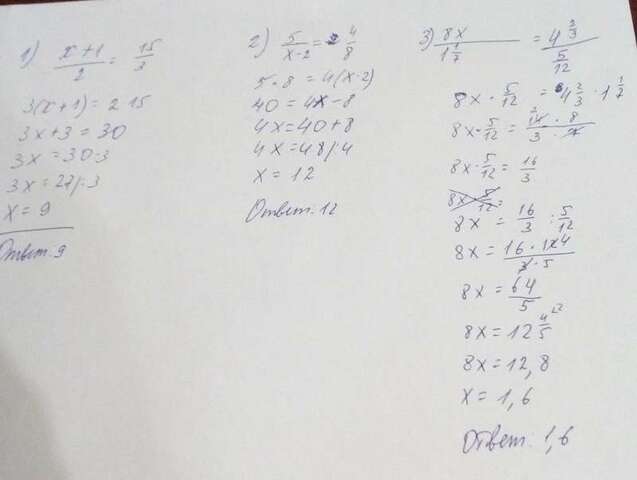 1) (x+1)/2 = 15/3
3(x+1) = 2 15
3x+3 = 30
3x = 30-3
3x = 27/:3
x = 9
Ответ: 9
2) 5/(x-2) = 4/8
5·8 = 4(x-2)
40 = 4x-8
4x = 40+8
4x = 48/:4
x = 12
Ответ: 12
3) 8x/(1 1/7) = (4 2/3)/(5/12)
8x · 5/12 = 4 2/3 · 1 1/7
8x · 5/12 = (14 · 8)/(3 · 7)
8x · 5/12 = 16/3
8x = 16/3 : 5/12
8x = (16 · 12 4)/(3 · 5)
8x = 64/5
8x = 12 4/5
8x = 12,8
x = 1,6
Ответ: 1,6